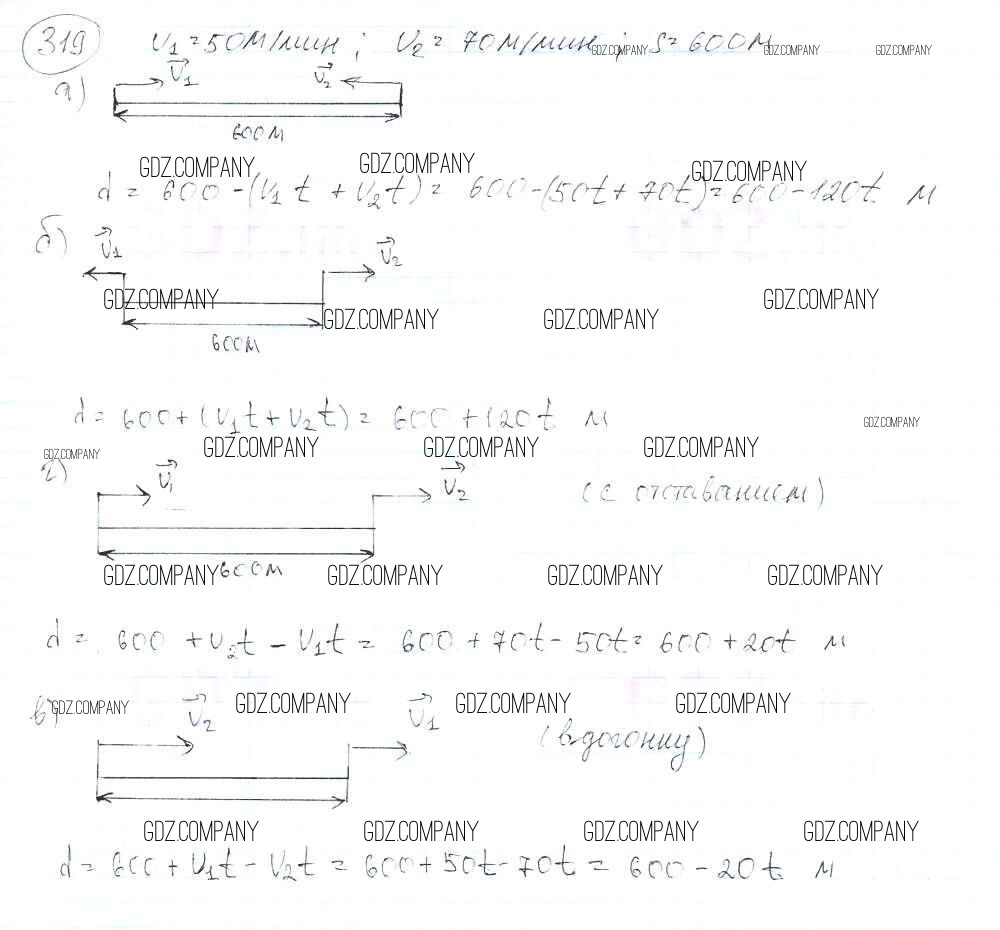 319 V₁ = 50 м/мин ; V₂ = 70 м/мин ; S = 600 м
GDZ.COMPANY GDZ.COMPANY GDZ.COMPANY
а) V₁ V₂
600 м
GDZ.COMPANY GDZ.COMPANY GDZ.COMPANY
d = 600 - (V₁t + V₂t) = 600 - (50t + 70t) = 600 - 120t м
б) V₁ V₂
GDZ.COMPANY GDZ.COMPANY GDZ.COMPANY GDZ.COMPANY
600 м
d = 600 + (V₁t + V₂t) = 600 + 120t м
GDZ.COMPANY
GDZ.COMPANY GDZ.COMPANY GDZ.COMPANY GDZ.COMPANY
г) V₁ V₂ (с отставанием)
600 м
GDZ.COMPANY GDZ.COMPANY GDZ.COMPANY GDZ.COMPANY
d = 600 + V₂t - V₁t = 600 + 70t - 50t = 600 + 20t м
GDZ.COMPANY GDZ.COMPANY GDZ.COMPANY GDZ.COMPANY
в) V₂ V₁ (вдогонку)
GDZ.COMPANY GDZ.COMPANY GDZ.COMPANY GDZ.COMPANY
d = 600 + V₁t - V₂t = 600 + 50t - 70t = 600 - 20t м